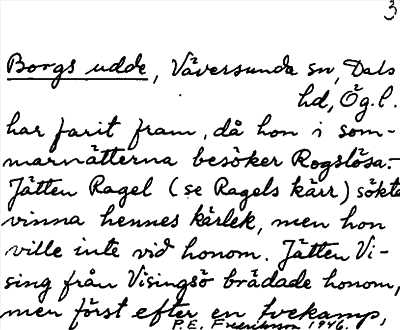 3
Borgs udde, Väversunda sn, Dals
hd, Ög.l.
har farit fram, då hon i som-
marnätterna besöker Rogslösa.-
Jätten Ragel (se Ragels kärr) sökte
vinna hennes kärlek, men hon
ville inte vid honom. Jätten Vi-
sing från Visingsö brådade honom,
men först efter en tvekamp,
P.E. 1946.